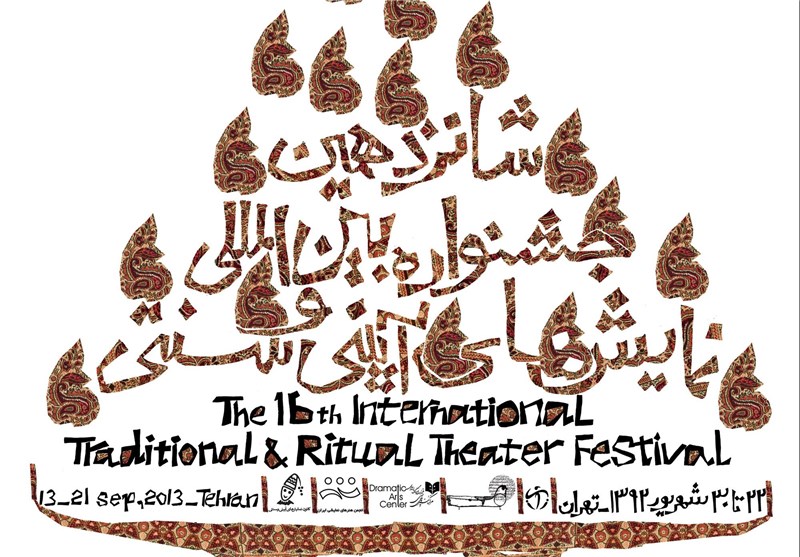 شانزدهمین
جشنواره بین المللی
نمایش‌های آیینی و سنتی
The 16th International
Traditional & Ritual Theater Festival
13_21 sep,2013_Tehran
Dramatic
Arts
Center
۲۲ تا ۳۰ شهریور ۱۳۹۲_تهران